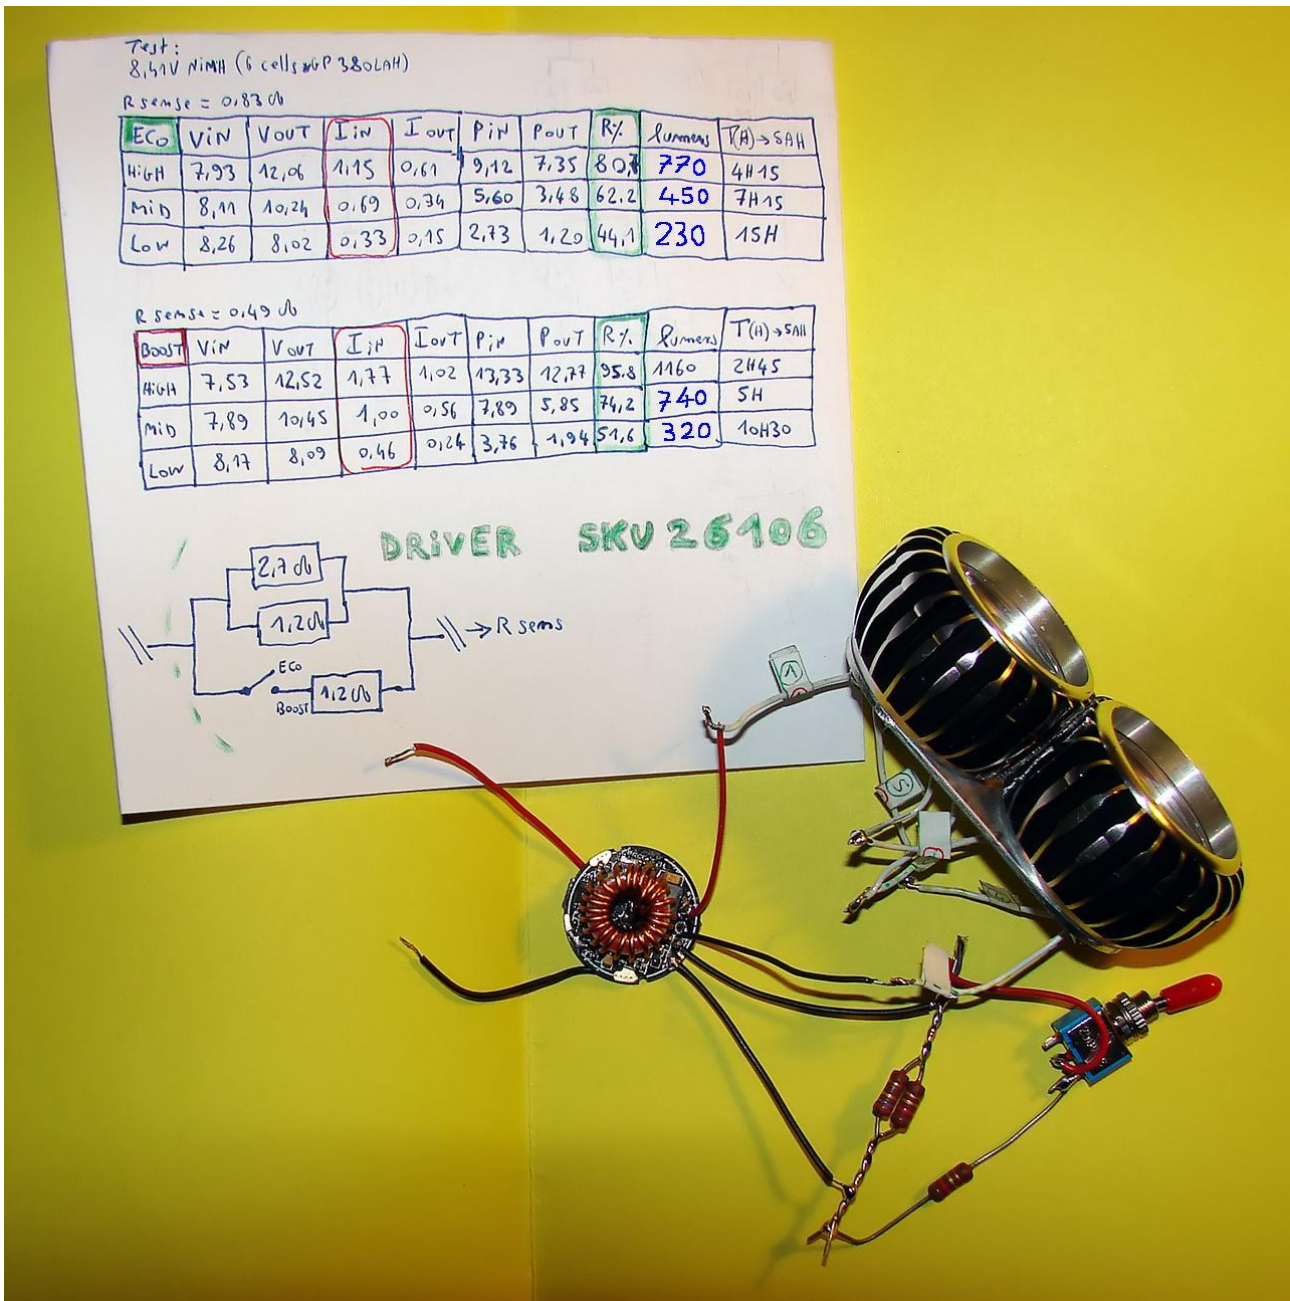 Test:
8,41V NiMH (6 cells GP 380LAH)
R sense = 0,83 Ω
ECO VIN VOUT IIN IOUT PIN POUT R% lumens T(H)→5AH
HIGH 7,93 12,06 1,15 0,61 9,12 7,35 80,7 770 4H15
MID 8,11 10,24 0,69 0,34 5,60 3,48 62.2 450 7H15
LOW 8,26 8,02 0,33 0,15 2,73 1,20 44,1 230 15H
R sense = 0,49 Ω
BOOST VIN VOUT IIN IOUT PIN POUT R% lumens T(H)→5AH
HIGH 7,53 12,52 1,77 1,02 13,33 12,77 95.8 1160 2H45
MID 7,89 10,45 1,00 0,56 7,89 5,85 74,2 740 5H
LOW 8,17 8,09 0,46 0,24 3,76 1,94 51,6 320 10H30
DRIVER SKU 26106
2,7 Ω
1,2 Ω
→ R sens
ECO
BOOST 1,2 Ω
1